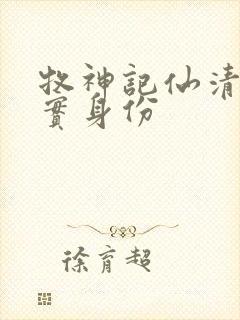 牧神記仙清
實身份
徐育超